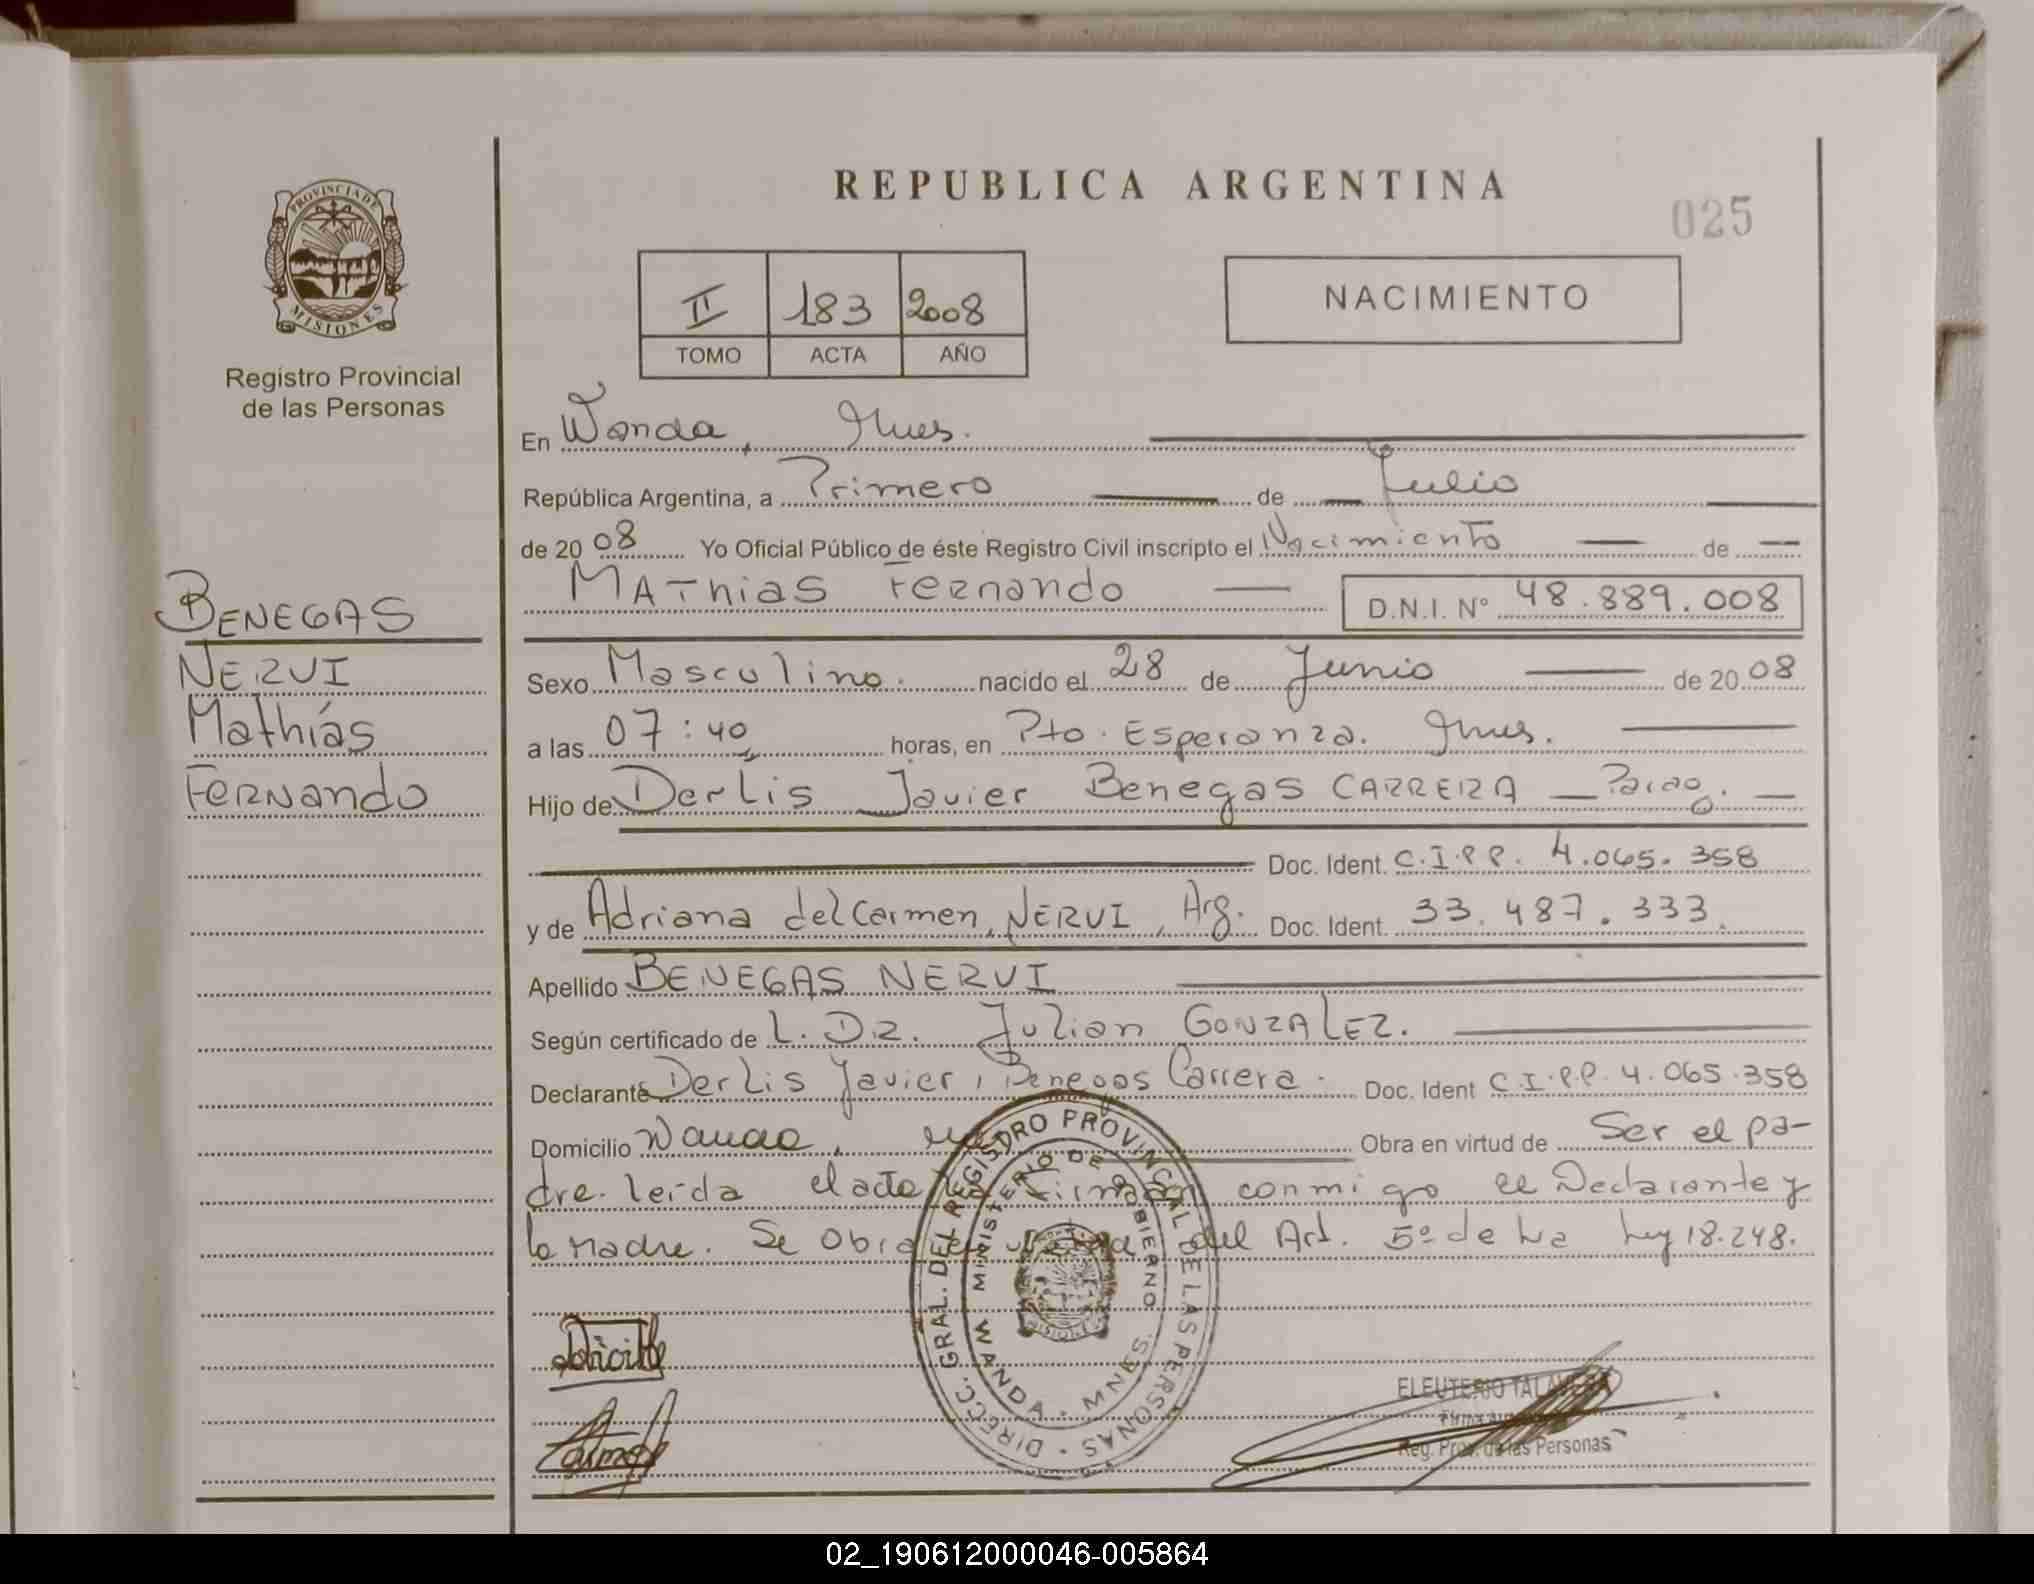 REPUBLICA ARGENTINA
025
PROVINCIA DE MISIONES
Registro Provincial
de las Personas
II 183 2008
TOMO ACTA AÑO
NACIMIENTO
En Wanda, Mnes.
República Argentina, a Primero de Julio
de 2008 Yo Oficial Público de éste Registro Civil inscripto el Nacimiento de
MAThias Fernando D.N.I. Nº 48.889.008
BENEGAS
NERVI
Mathías
Fernando
Sexo Masculino. nacido el 28 de Junio de 2008
a las 07:40 horas, en Pto. Esperanza. Mnes.
Hijo de Derlis Javier Benegas CARRERA Parag.
Doc. Ident. C.I.P.P. 4.065.358
y de Adriana del Carmen, NERVI, Arg. Doc. Ident. 33.487.333.
Apellido BENEGAS NERVI
Según certificado de L. Dr. Julian GONZALEZ.
Declarante Derlis Javier, Benegas Carrera. Doc. Ident C.I.P.P. 4.065.358
Domicilio Wanda, Obra en virtud de Ser el pa-
dre. leída el acta la firman conmigo el Declarante y
la Madre. Se Obra del Art. 5º de la Ley 18.248.
DIRECC. GRAL. DEL REGISTRO PROVINCIAL DE LAS PERSONAS
MINISTERIO DE GOBIERNO
WANDA - MNES.
MISIONES
ELEUTERIO TALAVERA
Reg. Prov. de las Personas
02_190612000046-005864